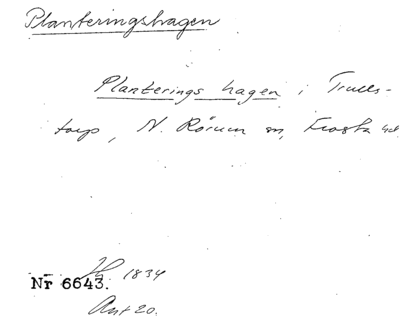 Planteringshagen
Planterings hagen i Trulls-
torp, N. Rörum sn, Frosta hd.
1834
Nr 6643.
Ant 20.